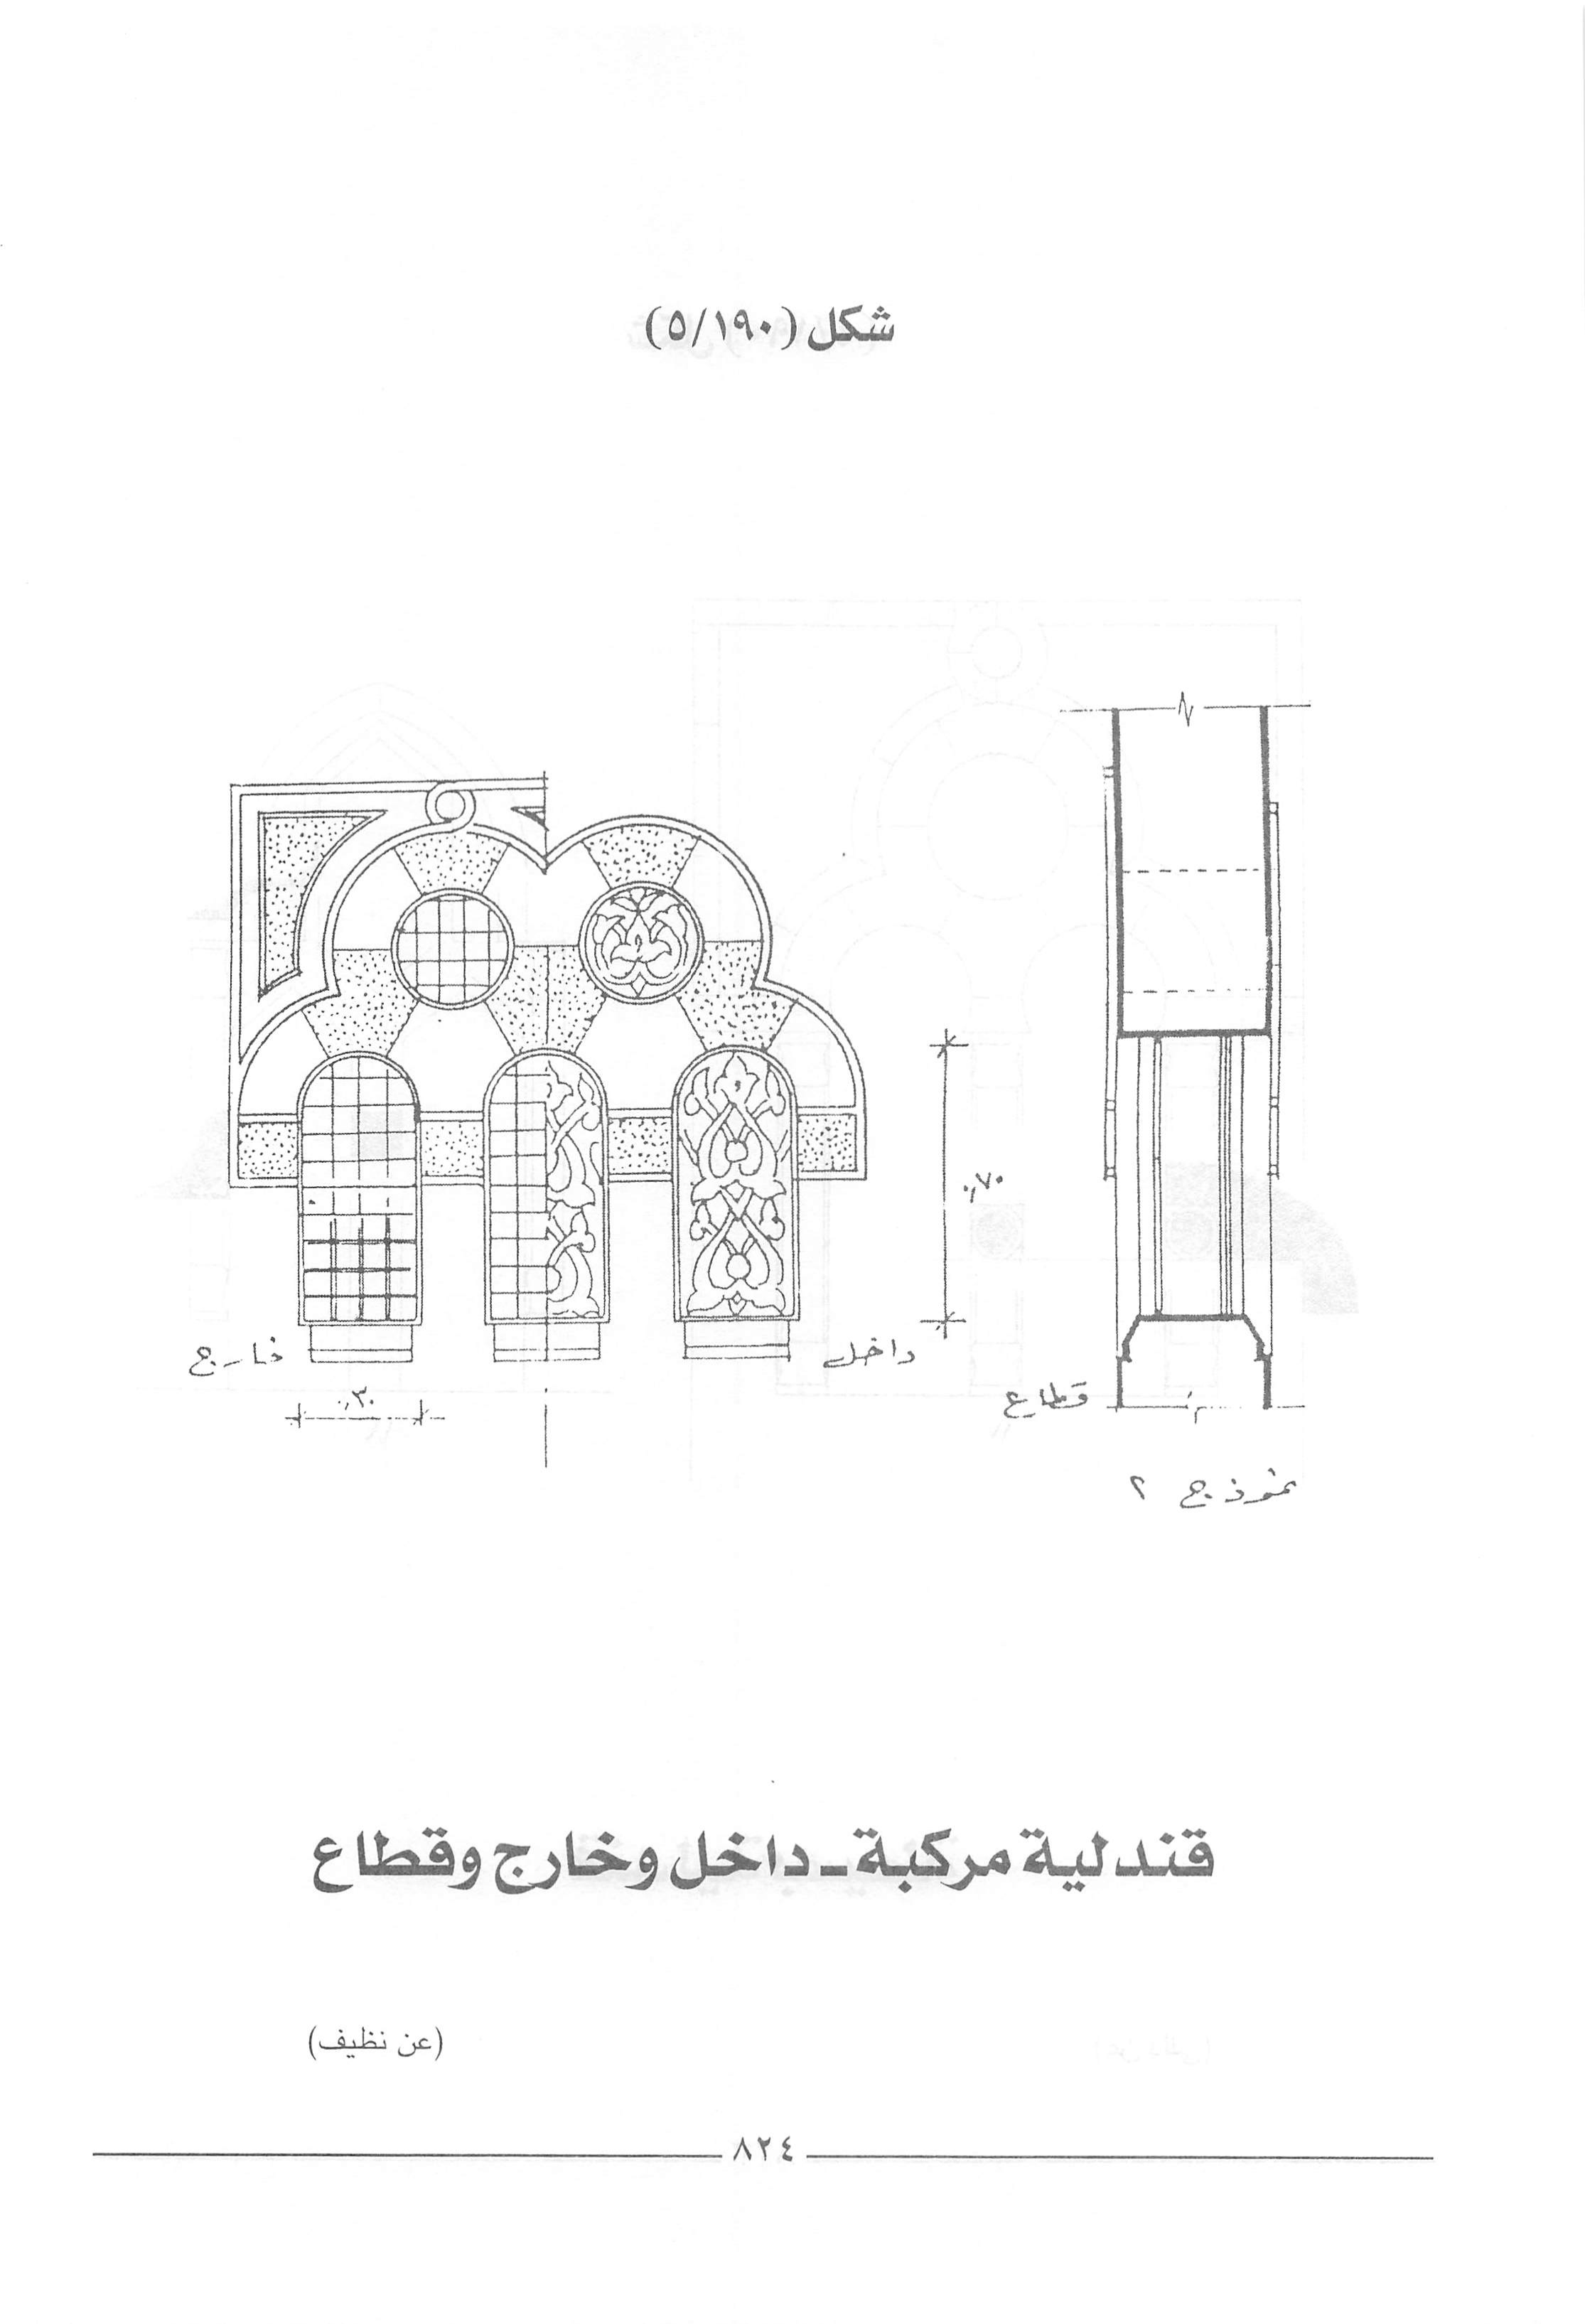 شكل (٥/١٩٠)
٠٫٧٠
داخل
خارج
٠٫٣٠
قطاع
نموذج ٢
قندلية مركبة ـ داخل وخارج وقطاع
(عن نظيف)
٨٢٤